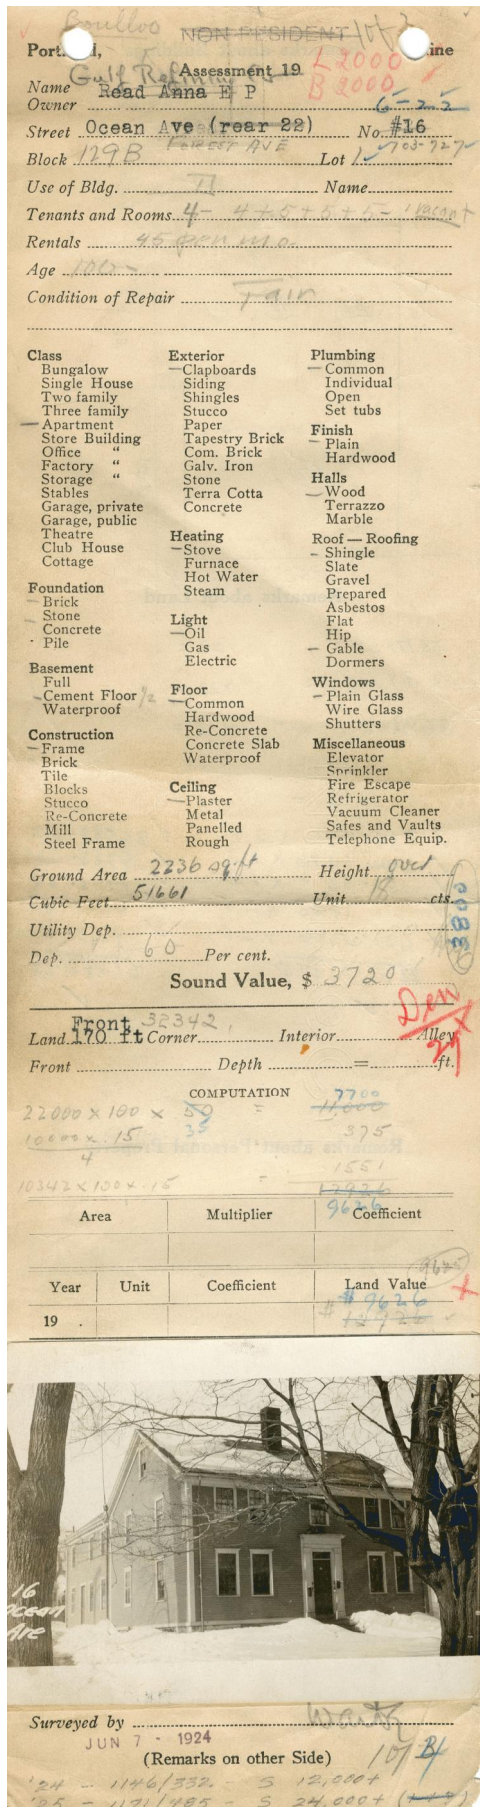 NON RESIDENT 1 of 2
Portland, Maine
Gulf Refining Co L 2000
Assessment 19 B 2000
Name Read Anna E P
Owner 6-22
Street Ocean Ave (rear 22) No. #16
FOREST AVE
Block 129B Lot 1 703-727
Use of Bldg. Name
Tenants and Rooms 4- 4+5+5+5- 1 vacant
Rentals 45 per mo.
Age 100-
Condition of Repair Fair
Class
Bungalow
Single House
Two family
Three family
Apartment
Store Building
Office "
Factory "
Storage "
Stables
Garage, private
Garage, public
Theatre
Club House
Cottage
Foundation
Brick
Stone
Concrete
Pile
Basement
Full
Cement Floor 1/2
Waterproof
Construction
Frame
Brick
Tile
Blocks
Stucco
Re-Concrete
Mill
Steel Frame
Exterior
Clapboards
Siding
Shingles
Stucco
Paper
Tapestry Brick
Com. Brick
Galv. Iron
Stone
Terra Cotta
Concrete
Heating
Stove
Furnace
Hot Water
Steam
Light
Oil
Gas
Electric
Floor
Common
Hardwood
Re-Concrete
Concrete Slab
Waterproof
Ceiling
Plaster
Metal
Panelled
Rough
Plumbing
Common
Individual
Open
Set tubs
Finish
Plain
Hardwood
Halls
Wood
Terrazzo
Marble
Roof — Roofing
Shingle
Slate
Gravel
Prepared
Asbestos
Flat
Hip
Gable
Dormers
Windows
Plain Glass
Wire Glass
Shutters
Miscellaneous
Elevator
Sprinkler
Fire Escape
Refrigerator
Vacuum Cleaner
Safes and Vaults
Telephone Equip.
Ground Area 2236 sq ft Height over
Cubic Feet 51661 Unit 18 cts.
Utility Dep.
Dep. 60 Per cent.
Sound Value, $ 3720
Front 32342
Land 170 ft Corner Interior Alley
Front Depth = ft.
COMPUTATION 7700
22000 x 100 x 50 = 11,000
35
10000 x .15 375
4
1551
10342 x 100 x .15 = 12926
9626
Area Multiplier Coefficient
9625
Year Unit Coefficient Land Value
$ 9626
19 . $ 12926
16
Ocean
Ave
Surveyed by
JUN 7 - 1924
(Remarks on other Side)
'24 - 1146/332 - S 12,000+
'25 - 1171/485 - S 24,000+